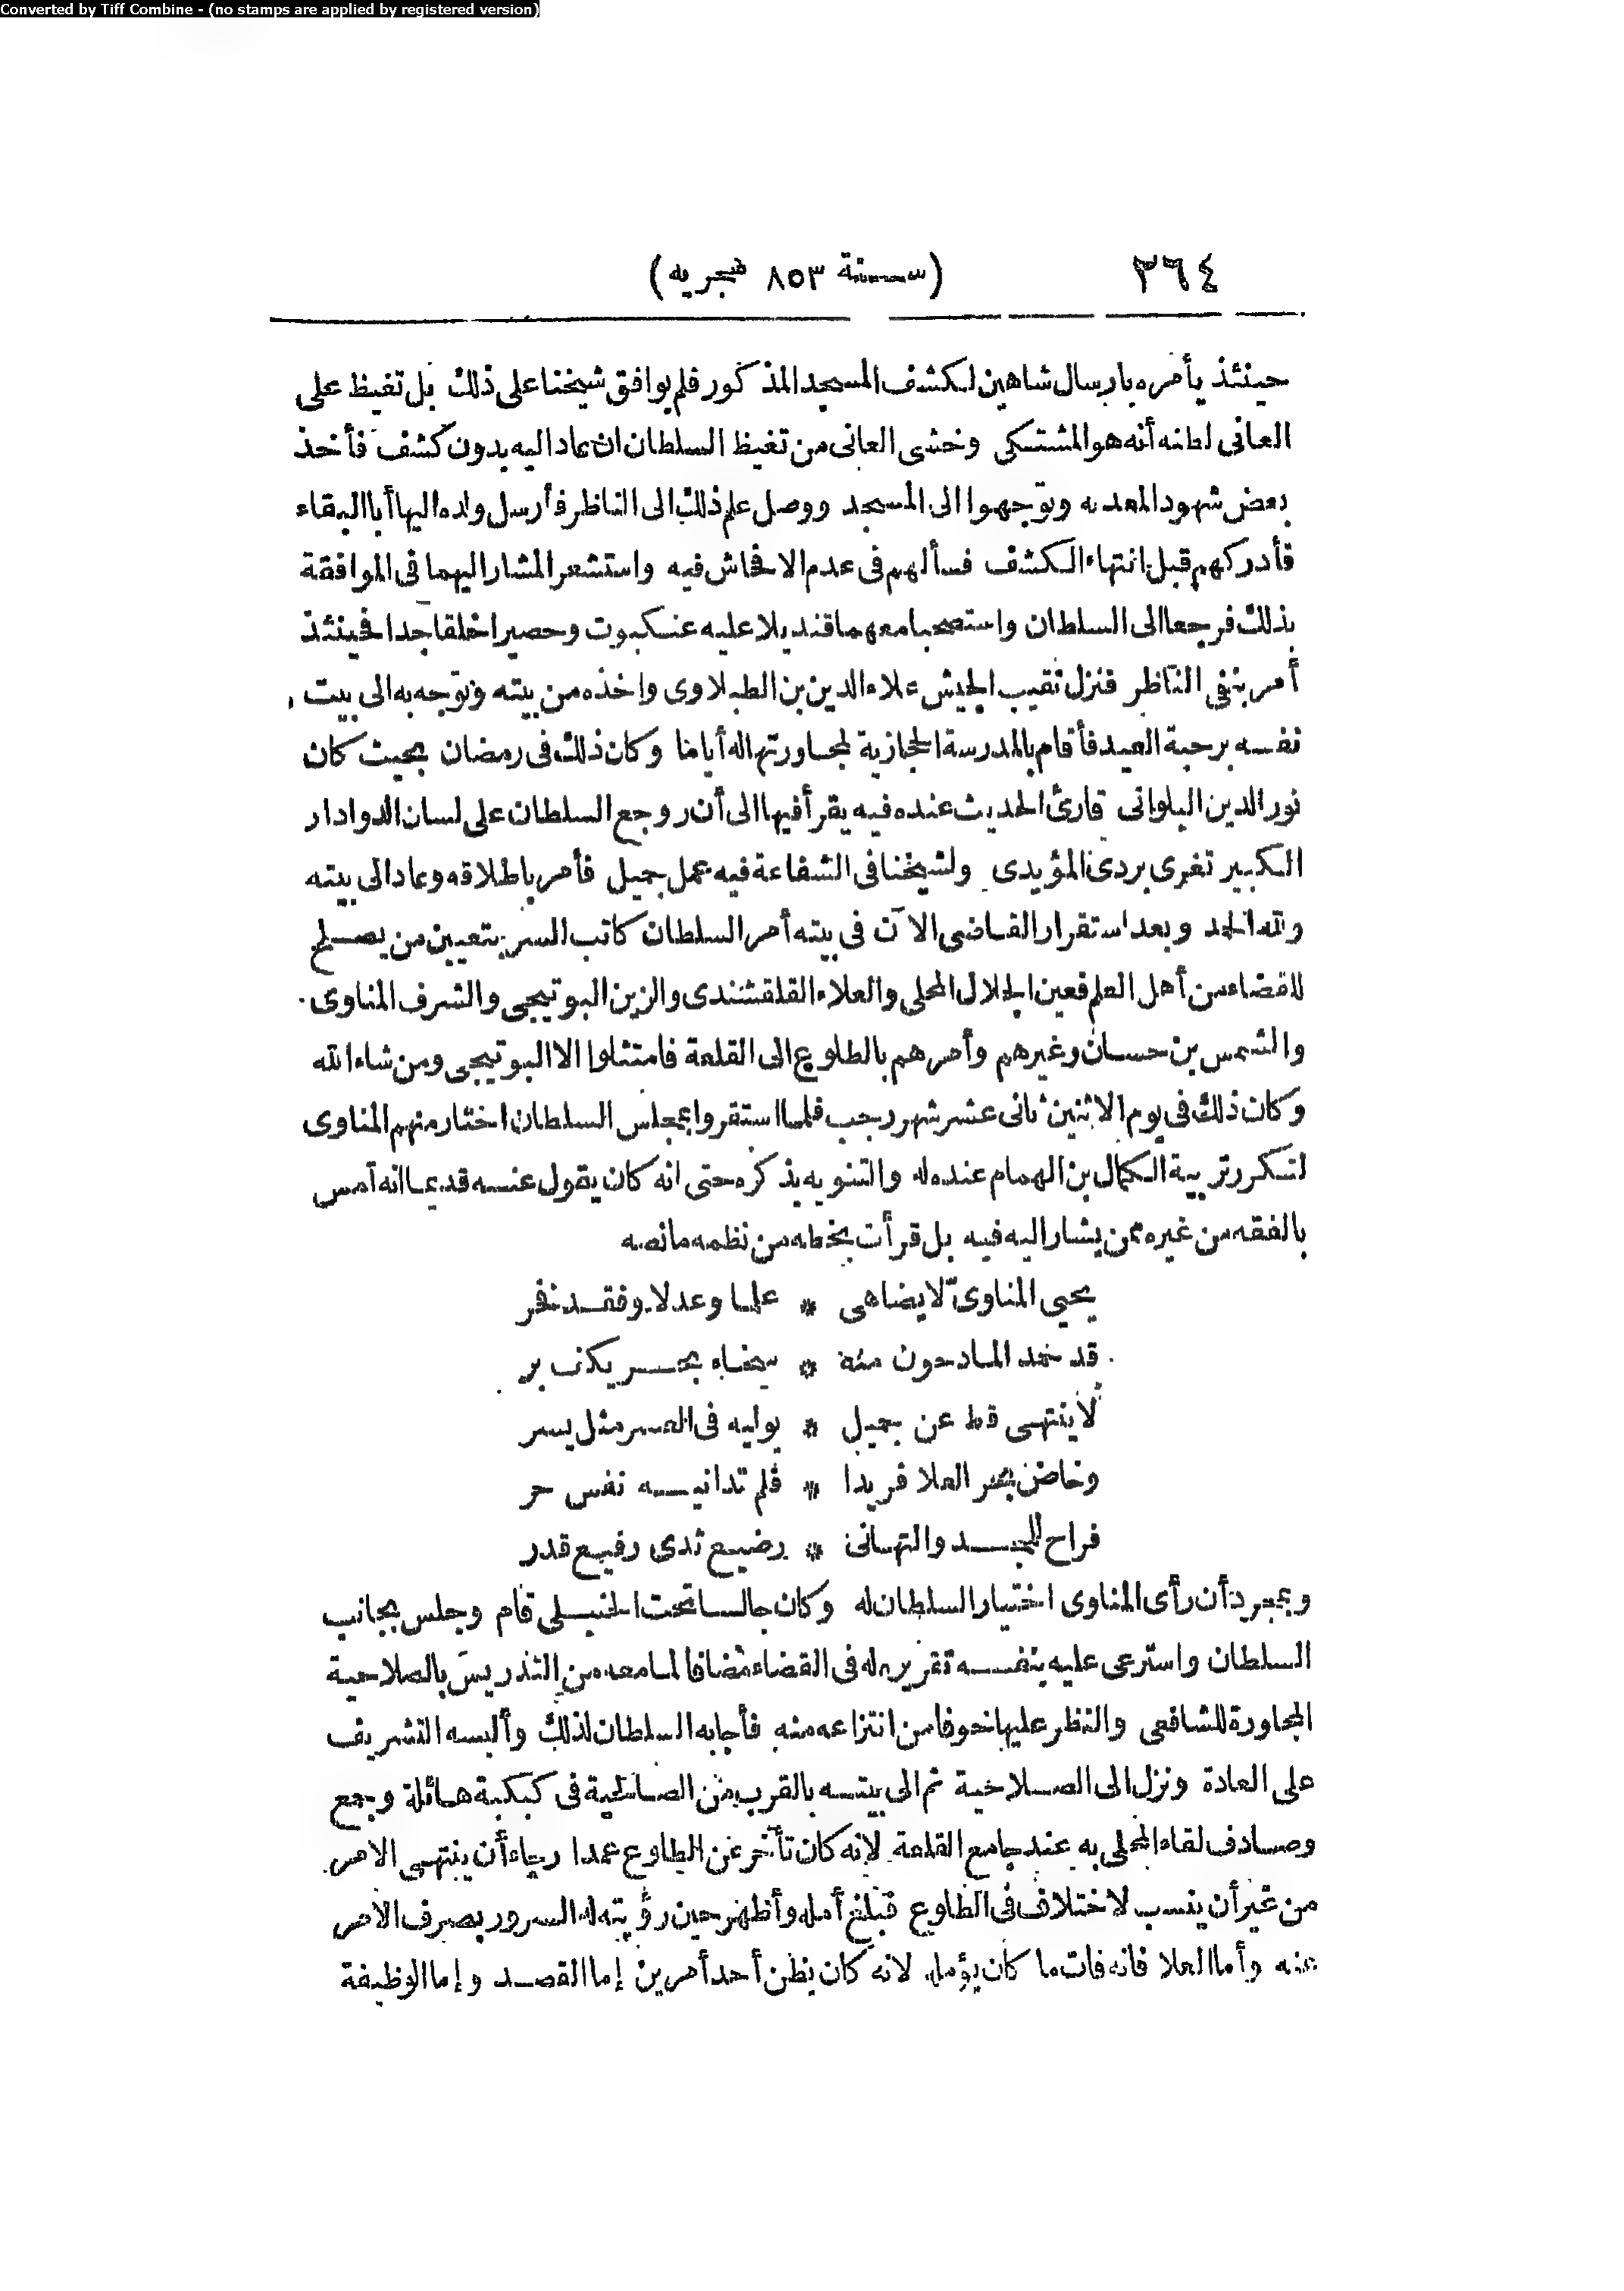 Converted by Tiff Combine - (no stamps are applied by registered version)
٣٦٤ (سنة ٨٥٣ هجريه)
حينئذ يأمره بارسال شاهين لكشف المسجد المذكور فلم يوافق شيخنا على ذلك بل تغيظ على
العانى لظنه أنه هو المشتكى وخشى العانى من تغيظ السلطان ان عاد اليه بدون كشف فأخذ
بعض شهود المعديه وتوجهوا الى المسجد ووصل علم ذلك الى الناظر فأرسل ولده اليها أبا البقاء
فأدركهم قبل انتهاء الكشف فسألهم فى عدم الافحاش فيه واستشعر المشار اليهما فى الموافقة
بذلك فرجعا الى السلطان واستصحبا معهما قنديلا عليه عنكبوت وحصيرا خلقا جدا فحينئذ
أمر بنفى الناظر فنزل نقيب الجيش علاء الدين بن الطبلاوى وأخذه من بيته وتوجه به الى بيت
نفسه برحبة العيد فأقام بالمدرسة الحجازية لمجاورتها له أياما وكان ذلك فى رمضان بحيث كان
نور الدين البلوانى قارئ الحديث عنده فيه يقرأ فيها الى أن روجع السلطان على لسان الدوادار
الكبير تغرى بردى المؤيدى ولشيخنا فى الشفاعة فيه عمل جميل فأمر باطلاقه وعاد الى بيته
ولله الحمد وبعد استقرار القاضى الآن فى بيته أمر السلطان كاتب السر بتعيين من يصلح
للقضاء من أهل العلم فعين الجلال المحلى والعلاء القلقشندى والزين البوتيجى والشرف المناوى
والشمس بن حسان وغيرهم وأمرهم بالطلوع الى القلعة فامتثلوا الا البوتيجى ومن شاء الله
وكان ذلك فى يوم الاثنين ثانى عشر شهر رجب فلما استقروا بمجلس السلطان اختار منهم المناوى
لتكرر تربية الكمال بن الهمام عنده له والتنويه بذكره حتى انه كان يقول عنه قديما انه آمس
بالفقه من غيره ممن يشار اليه فيه بل قرأت بخطه من نظمه مانصه
يحيى المناوىّ لا يضاهى * علما وعدلا وفقد نخر
قد حمد المادحون منه * سخاء بحر يكف بر
لا ينتهى قط عن جميل * يوليه فى العسر مثل يسر
وخاض بحر العلا فريدا * فلم تدانيه نفس حر
فراح للمجد والتهانى * رضيع ثدى رفيع قدر
وبمجرد أن رأى المناوى اختيار السلطان له وكان جالسا تحت الحنبلى قام وجلس بجانب
السلطان واسترعى عليه بنفسه تقريره له فى القضاء مضافا لما معه من التدريس بالصلاحية
المجاورة للشافعى والنظر عليها خوفا من انتزاعه منه فأجابه السلطان لذلك وألبسه التشريف
على العادة ونزل الى الصلاحية ثم الى بيته بالقرب من الصالحية فى كبكبة هائلة وجمع
وصادف لقاء المحلى به عند جامع القلعة لانه كان تأخر عن الطلوع عمدا رجاء أن ينتهى الامر
من غير أن ينسب لاختلاف فى الطلوع فبلغ أمله وأظهر حين رؤيته له السرور بصرف الامر
عنه وأما العلا فانه فات ما كان يؤمله لانه كان يظن أحد أمرين إما القصد وإما الوظيفة